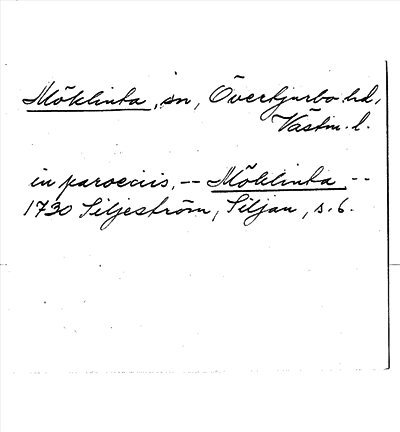 Möklinta, sn, Övertjurbo hd,
Västm. l.
in paroeciis, -- Möklinta --
1730 Siljeström, Siljan, s. 6.